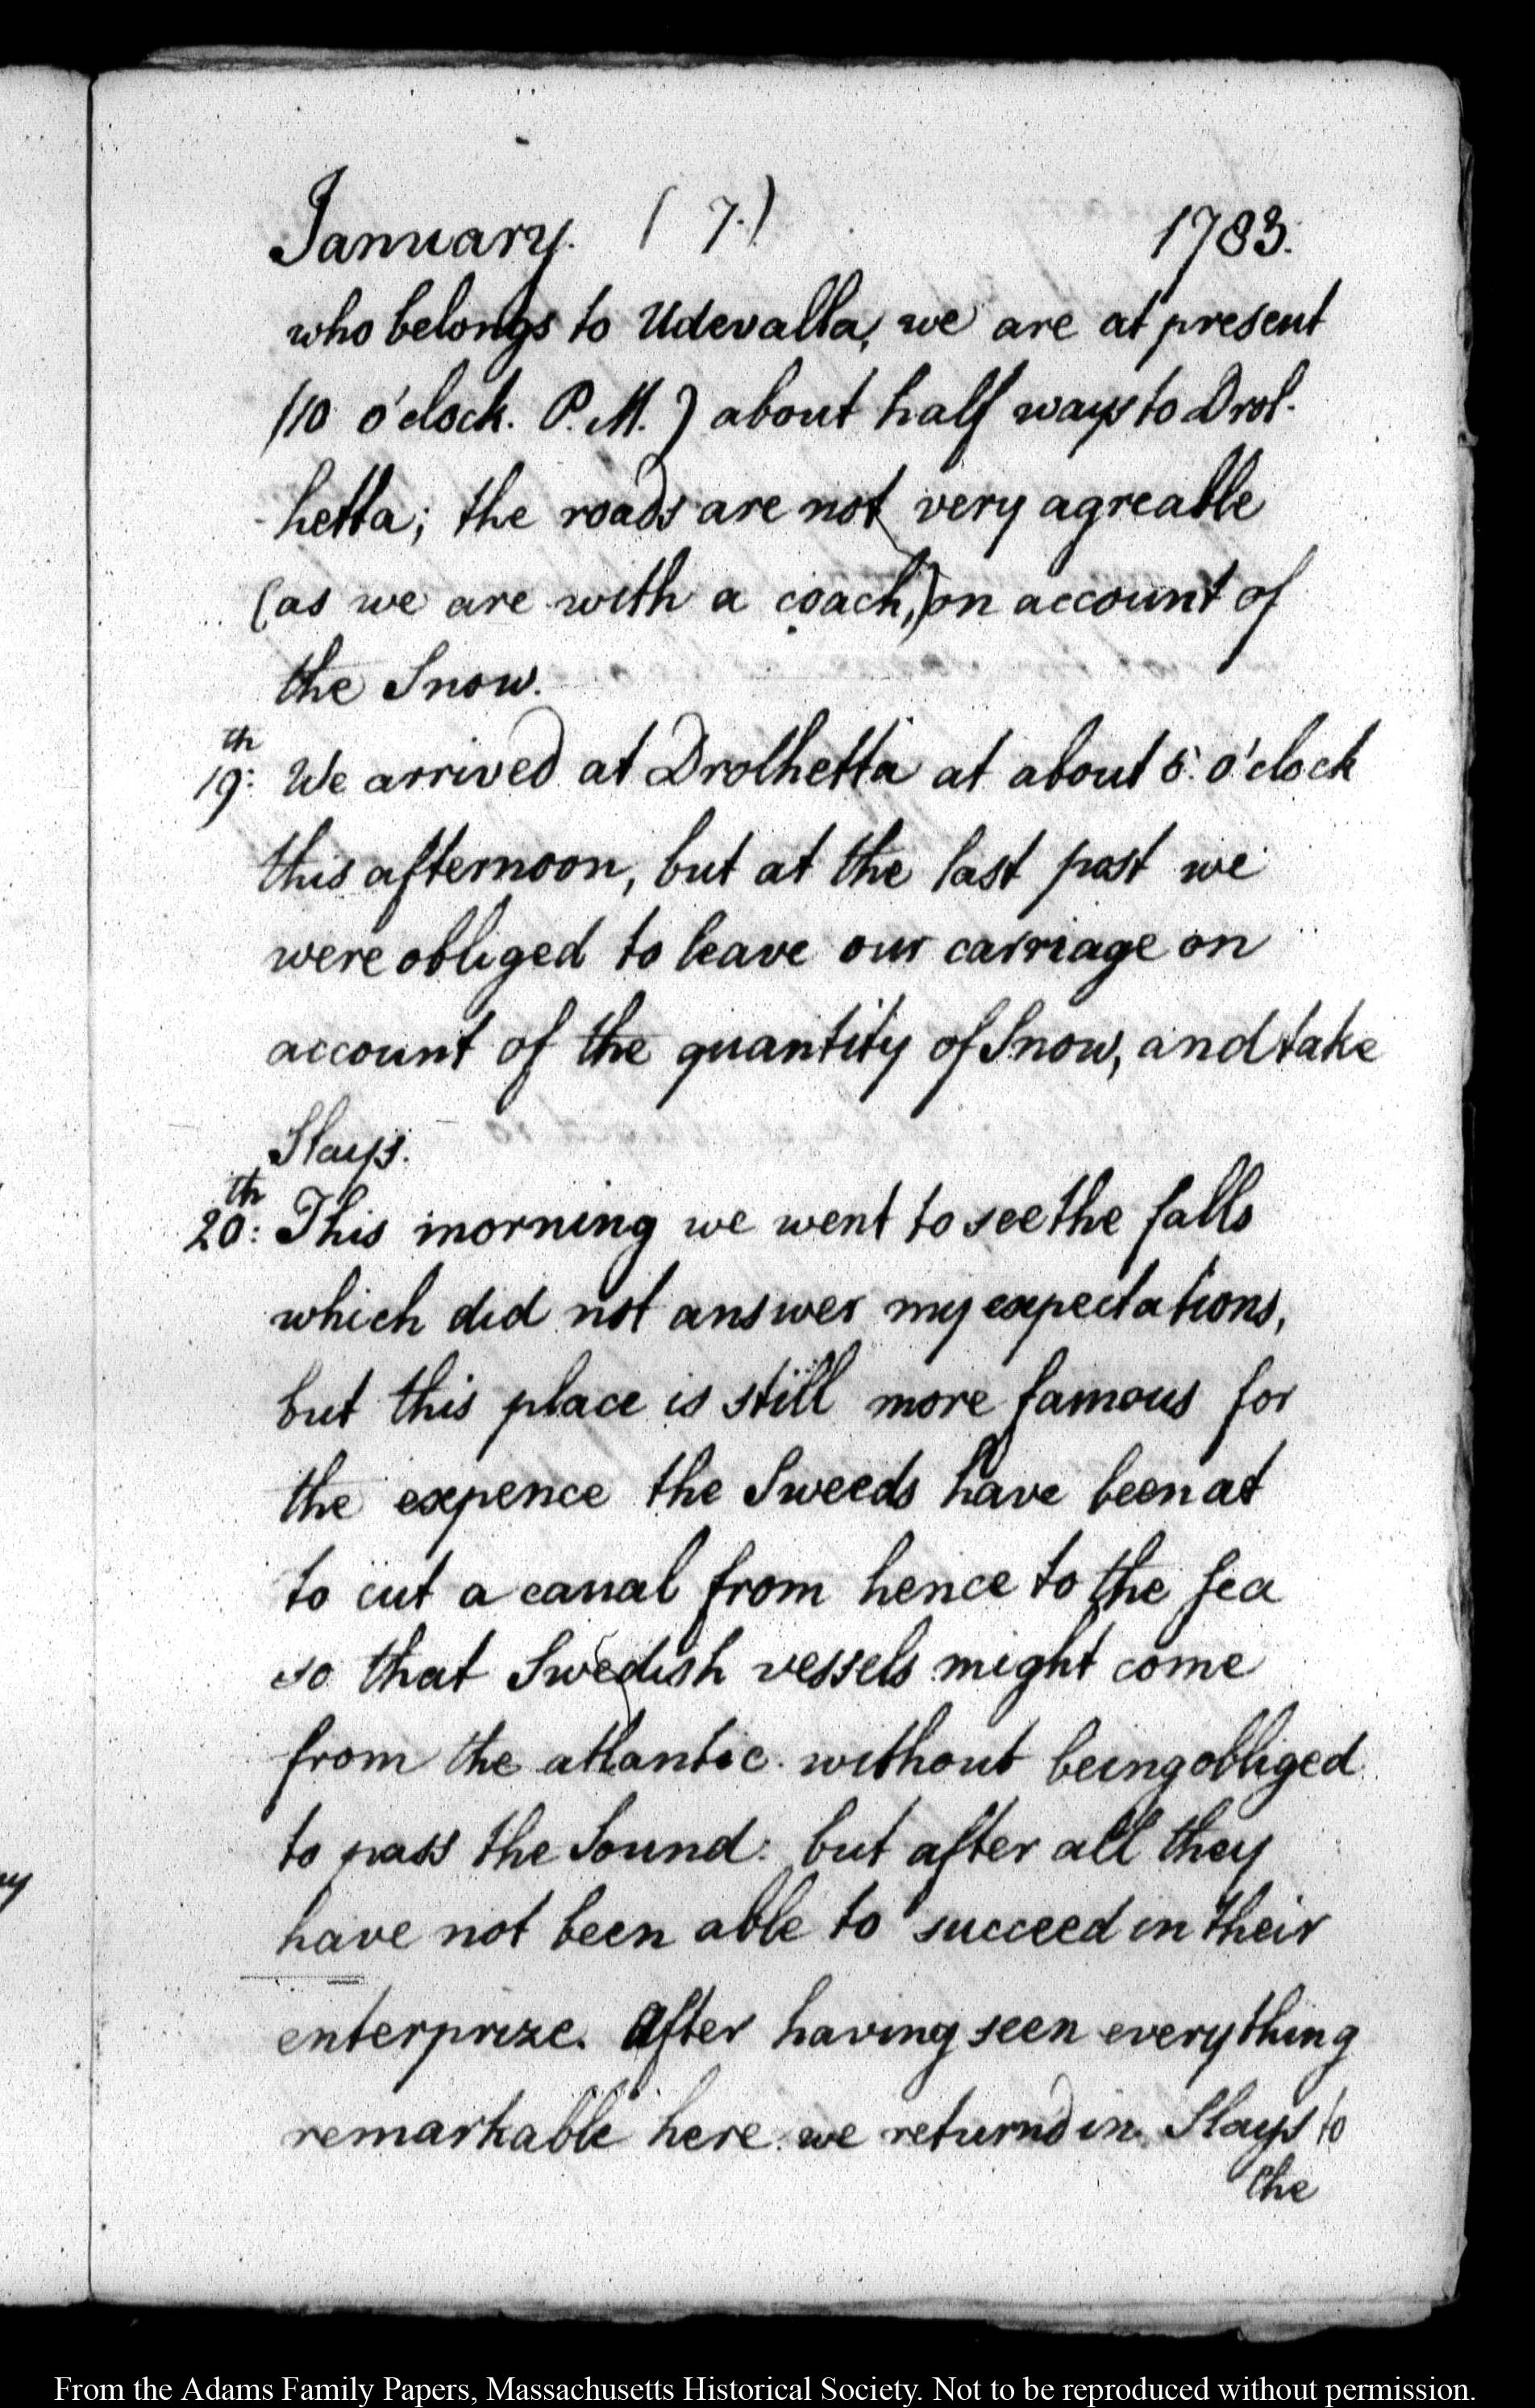 January. (7.) 1783.
who belongs to Udevalla, we are at present
(10 o'clock. P.M.) about half ways to Drol-
hetta; the roads are not very agreable
(as we are with a coach,) on account of
the Snow.
19th: We arrived at Drolhetta at about 5 o'clock
this afternoon, but at the last post we
were obliged to leave our carriage on
account of the quantity of Snow, and take
Slays.
20th: This morning we went to see the falls
which did not answer my expectations,
but this place is still more famous for
the expence the Sweeds have been at
to cut a canal from hence to the Sea
so that Swedish vessels might come
from the atlantic without being obliged
to pass the Sound: but after all they
have not been able to succeed in their
enterprize. After having seen everything
remarkable here we returnd in Slays to
the
From the Adams Family Papers, Massachusetts Historical Society. Not to be reproduced without permission.